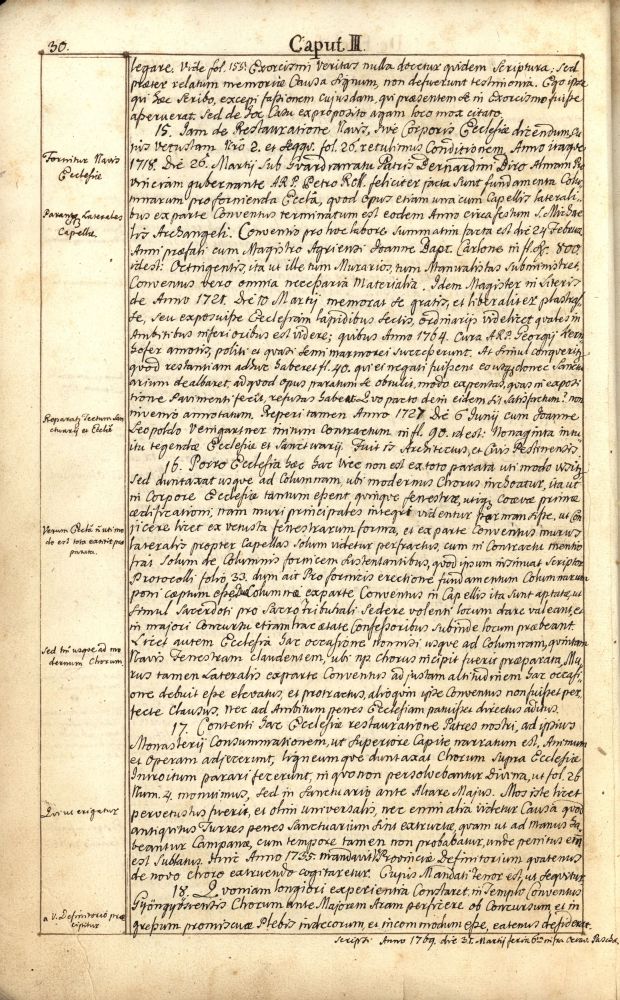 30.
Caput III.
legare. Vide fol. 155. Exorcismi veritas nulla docetur quidem Scriptura; sed
præter relatum memoriæ Causa Signum, non defuerunt testimonia. Ego ipse
qui hæc scribo, excepi fassionem cujusdam, qui præsentem se in Exorcismo fuisse
asseruerat. Sed de hoc Casu ex proposito agam loco mox citato.
15. Iam de Restauratione Navis, sive Corporis Ecclesiæ dicendum, cu
jus vetustam Nro 2. et seqq. fol. 26. retulimus Conditionem. Anno itaque
1718. Die 26. Martij sub Guardianatu Patris Bernardini Diro Almam Pro
vinciam gubernante A.R.P. Petro Roll. feliciter facta sunt fundamenta Colu
mnarum pro fornienda Ecclâ, quod opus etiam una cum Capellis laterali
bus ex parte Conventus terminatum est eodem Anno circa festum S. Micha
lis Archangeli. Conventio pro hoc labore Summatim facta est die 24 Februa
Anni præfati cum Magistro Agriensi Joanne Bapt. Carlone in fl. 800.
idest: Octingentis, ita ut ille tum Murarios, tum Manualistas Subministret,
Conventus vero omnia necessaria Materialia. Idem Magister in Literis
de Anno 1721. Die 10 Martij memorat se gratis, et liberaliter plastras
se, seu exposuisse Ecclesiam lapidibus sectis, ordinarijs videlicet quales in
Ambitibus inferioribus est videre; quibus Anno 1764. Cura A.R.P. Georgij Kern
hofer amotis, politi et quasi semimarmorei successerunt. At simul conqueritur
quod restantiam adhuc haberet fl. 40. qui ei negati fuissent eousque donec Sanctu
arium dealbaret, ad quod opus paratum se obtulit, modo expensas, quas in exposi
tione Pavimenti fecit, refusas habeat. Quo pacto demum eidem sit satisfactum? non
invenio annotatum. Reperi tamen Anno 1727 Die 6 Junij cum Joanne
Leopoldo Veingartner initum Contractum in fl. 90. idest: Nonaginta intui
tu tegendæ Ecclesiæ et Sanctuarij. Fuit is Architectus, et Civis Pestinensis.
16. Porro Ecclesia hæc hac vice non est ex toto parata uti modo visit
sed duntaxat usque ad Columnam, ubi modernus Chorus inchoatur, ita ut
in Corpore Ecclesiæ tantum essent quinque fenestræ, utiq. coævæ primæ
ædificationi, nam muri principales integri videntur permansisse, ut con
jicere licet ex vetusta fenestrarum forma, et ex parte Conventus murus
lateralis propter Capellas solum videtur perfractus, cum in Contractu mentio
fiat solum de Columnis fornicem sustentantibus, quod ipsum insinuat Scriptor
Protocolli folio 33. dum ait Pro fornicis erectione fundamentum Columnarum
poni cæptum esse. Columnæ ex parte Conventus in Capellis ita sunt aptatæ, ut
simul Sacerdoti pro Sacro Tribunali sedere volenti locum dare valeant, et
in majori Concursu etiam hac ætate Confessoribus subinde locum præbeant.
Licet autem Ecclesia hac occasione nonnisi usque ad Columnam, quintam
Navis Fenestram claudentem, ubi np. Chorus incipit fuerit præparata, Mu
rus tamen Lateralis ex parte Conventus ad justam altitudinem hac occasi
one debuit esse elevatus, et protractus, alioquin ipse Conventus non fuisset per
fecte Clausus, nec ad Ambitum penes Ecclesiam patuisset directus aditus.
17. Contenti hac Ecclesiæ restauratione Patres nostri, ad ipsius
Monasterij Consummationem, ut superiore Capite narratum est, Animum
et Operam adjecerunt, ligneumque duntaxat Chorum supra Ecclesiæ
Introitum parari fecerunt, in quo non persolvebantur Divina, ut fol. 26
Num. 4. monuimus, sed in Sanctuario ante Altare Majus. Mos iste licet
pervetustus fuerit, et olim universalis, nec enim alia videtur Causa quod
antiquitus Turres penes Sanctuarium sint extructæ, quam ut ad manus ha
beantur Campanæ, cum tempore tamen non probabatur, unde penitus etiam
est sublatus. Hinc Anno 1755. mandavit Provinciæ Definitorium quatenus
de novo choro extruendo cogitaretur. Cujus Mandati tenor est, ut sequitur.
18. Quoniam longiori experientia Constaret, in Templo Conventus
Gyöngyösiensis Chorum ante Majorem Aram perficere ob Concursum, et in
gressum promiscuæ Plebis indecorum, et incommodum esse, eatenus desiderat.
Scripsi Anno 1769. die 31. Martij feria 6ta infra Octav. Paschæ.
Fornitur Navis
Ecclesiæ
Parantr Laterales
Capellæ.
Reparatr Tectum San
ctuarij et Ecclæ
Verum Eccla n uti mo
do est tota extitit præ
parata.
Sed tm usque ad mo
dernum Chorum
Qui ut erigatur
a V. Definitorio præ
cipitur